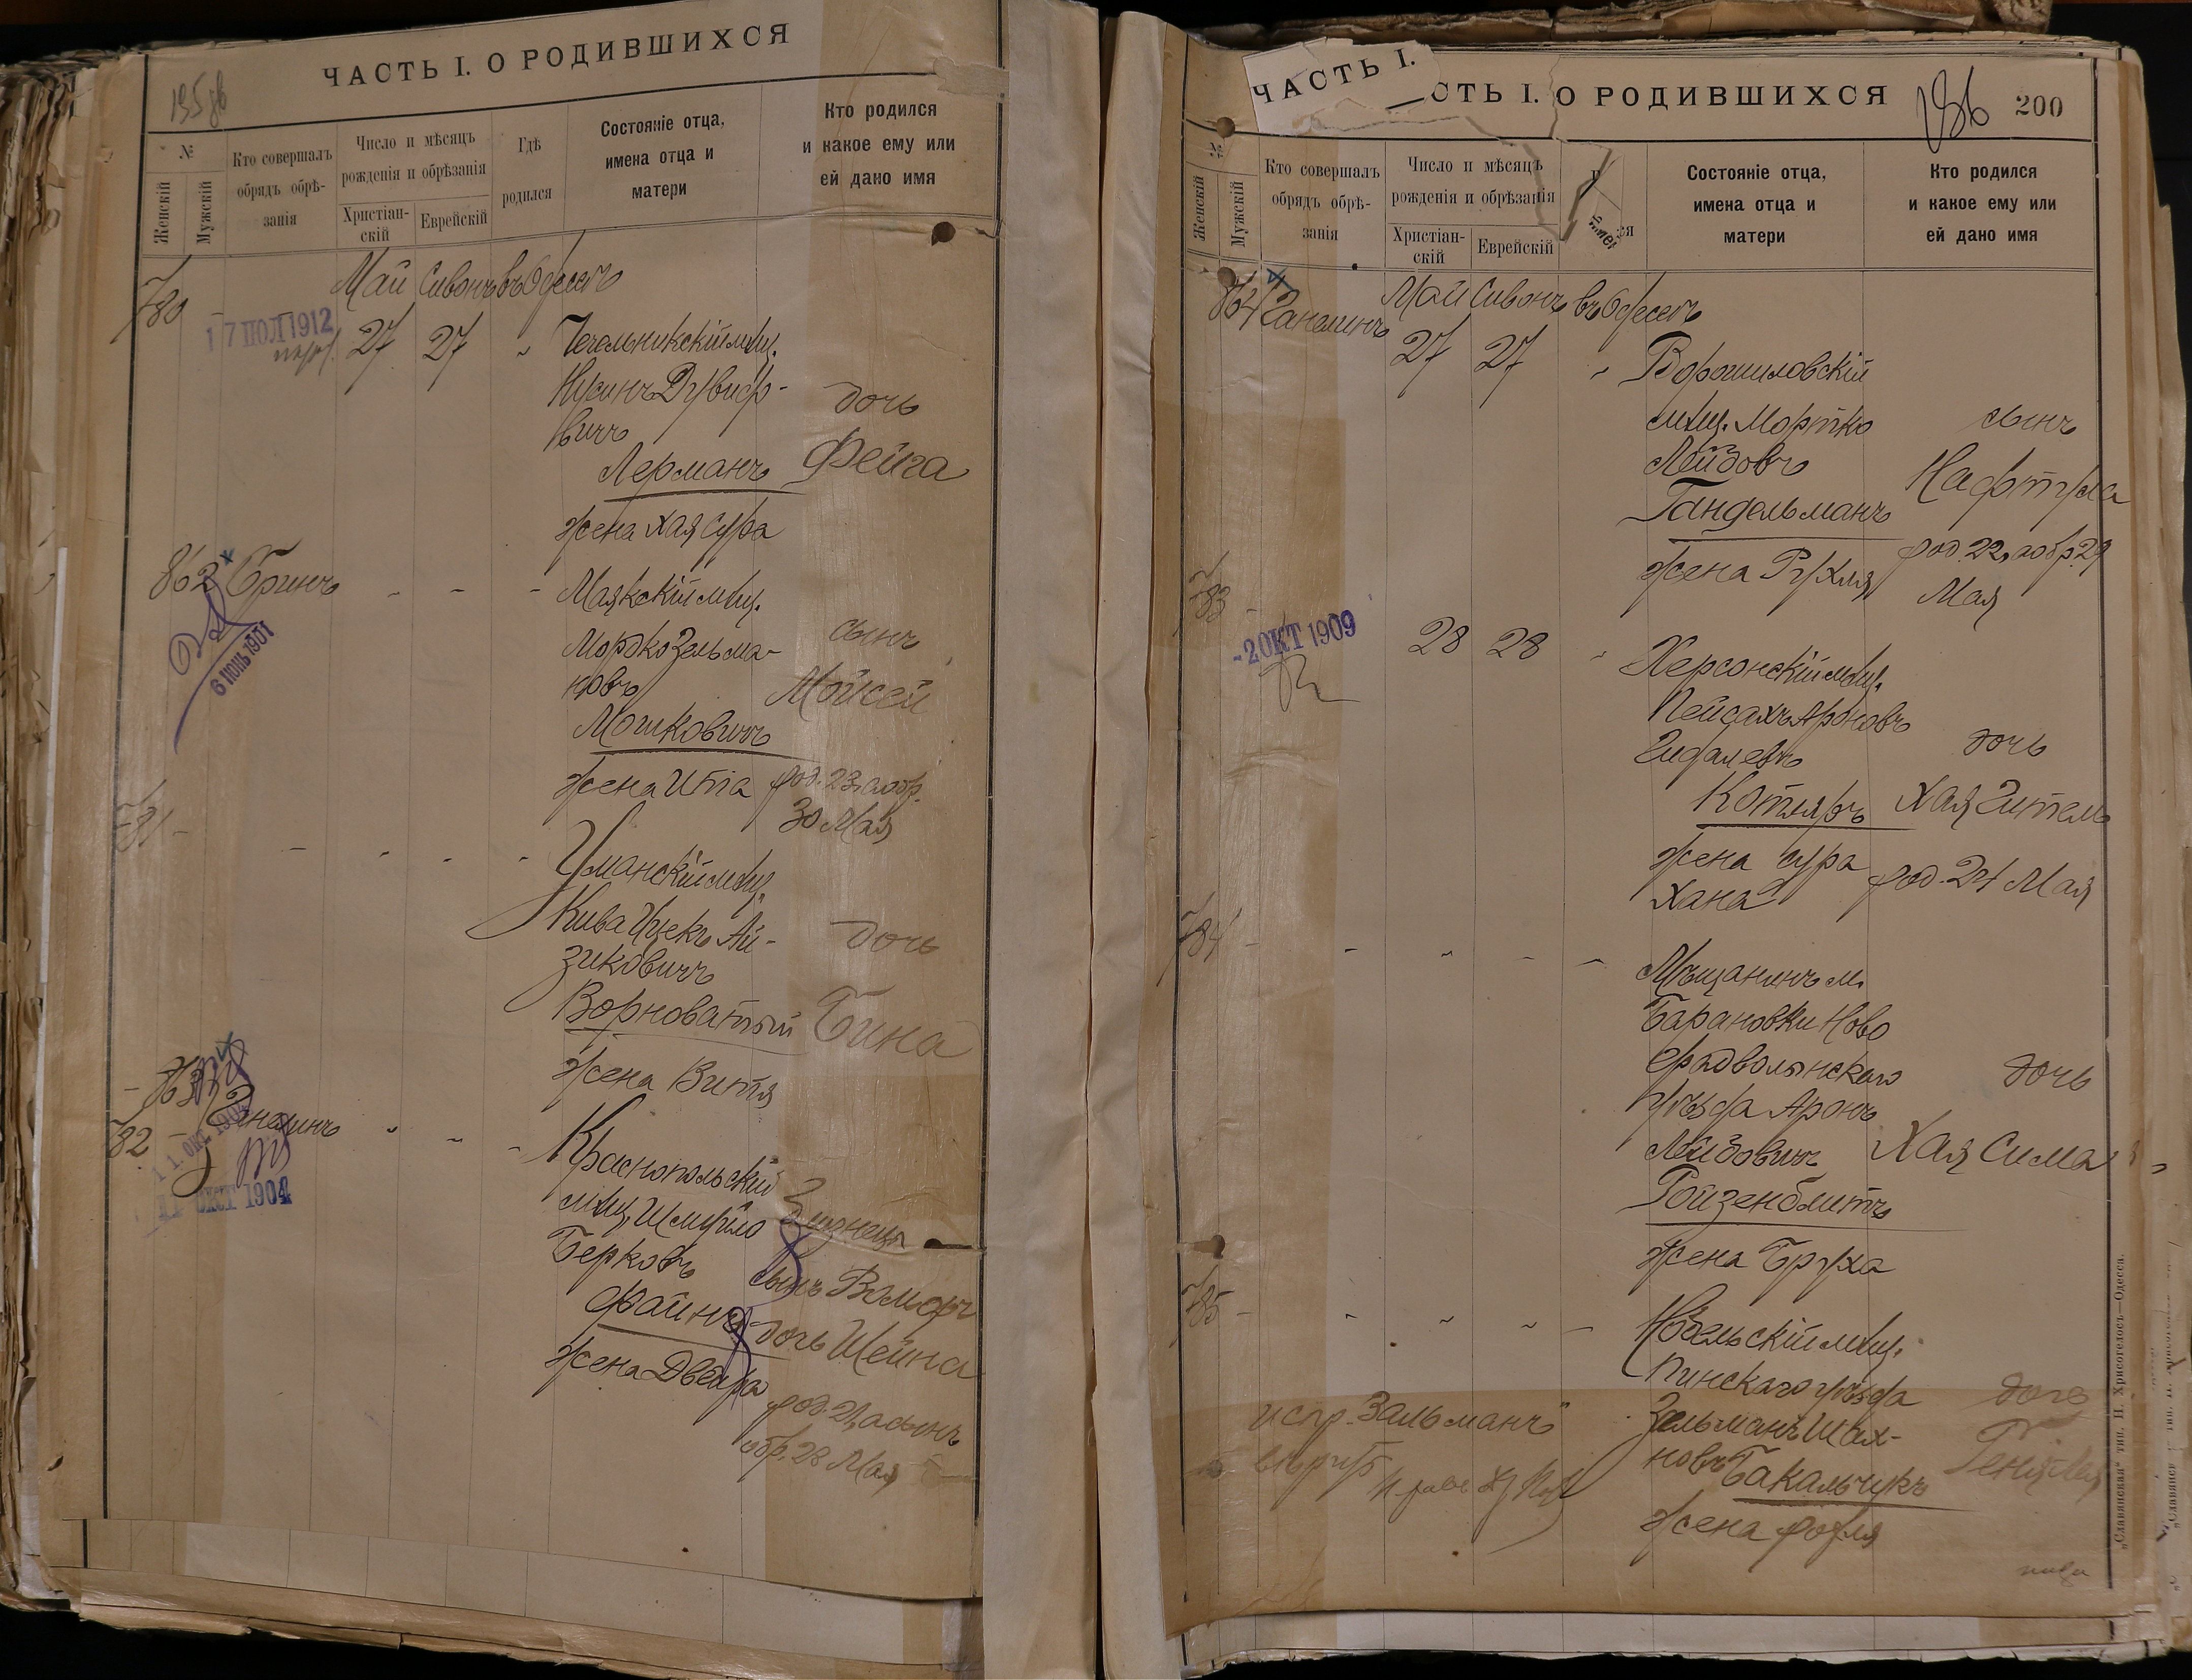 195 об
ЧАСТЬ I. О РОДИВШИХСЯ
№
Женскій
Мужскій
Кто совершалъ
обрядъ обрѣ-
занія
Число и мѣсяцъ
рожденія и обрѣзанія
Христіан-
скій
Еврейскій
Гдѣ
родился
Состояніе отца,
имена отца и
матери
Кто родился
и какое ему или
ей дано имя
Май Сивонъ въ Одессѣ
780
17 ІЮЛ 1912
27 27 "
Чечельникскій мѣщ.
Нусинъ Дувидо-
вичъ
Лерманъ
жена Хая Сура
дочь
Фейга
862 Бринъ - - -
6 ІЮНЬ 1901
Маякскій мѣщ.
Мордко Зельма-
новъ
Мошковичъ
жена Ита
сынъ
Мойсей
род. 23, а обр.
30 Мая
781 - - - - -
Уманскій мѣщ.
Кива Ицекъ Ай-
зиковичъ
Ворноватый
жена Витя
дочь
Бина
863
782 - Ганелинъ " - -
11 ОКТ 1904
Краснопольскій
мѣщ. Шмуйло
Берковъ
Файнъ
жена Двейра
2
близнецы
сынъ Вольфъ
дочь Шейна
род. 21, а сынъ
обр. 28 Мая
ЧАСТЬ I.
СТЬ I. О РОДИВШИХСЯ
196
200
№
Женскій
Мужскій
Кто совершалъ
обрядъ обрѣ-
занія
Число и мѣсяцъ
рожденія и обрѣзанія
Христіан-
скій
Еврейскій
Состояніе отца,
имена отца и
матери
Кто родился
и какое ему или
ей дано имя
Май Сивонъ въ Одессѣ
864 Ганелинъ 27 27 "
Ворошиловскій
мѣщ. Мортко
Лейзовъ
Гандельманъ
жена Рухля
сынъ
Нафтула
род. 22, а обр. 29
Мая
783 -
-2 ОКТ 1909
28 28 "
Херсонскій мѣщ.
Пейсахъ Ароновъ
Гидалевъ
Котляръ
жена Сура
Хана
дочь
Хая Гитель
род. 24 Мая
784 - - " - -
Мѣщанинъ м.
Барановки Ново
градволынскаго
уѣзда Аронъ
Лейзовичъ
Ройзенблитъ
жена Бруха
дочь
Хая Сима
785 - " - - -
Нобельскій мѣщ.
Пинскаго уѣзда
Зельманъ Шах-
новъ Бакальчукъ
жена Фрейля
дочь
испр. "Зальманъ"
„Славянская“ тип. Н. Хрисогелосъ—Одесса.